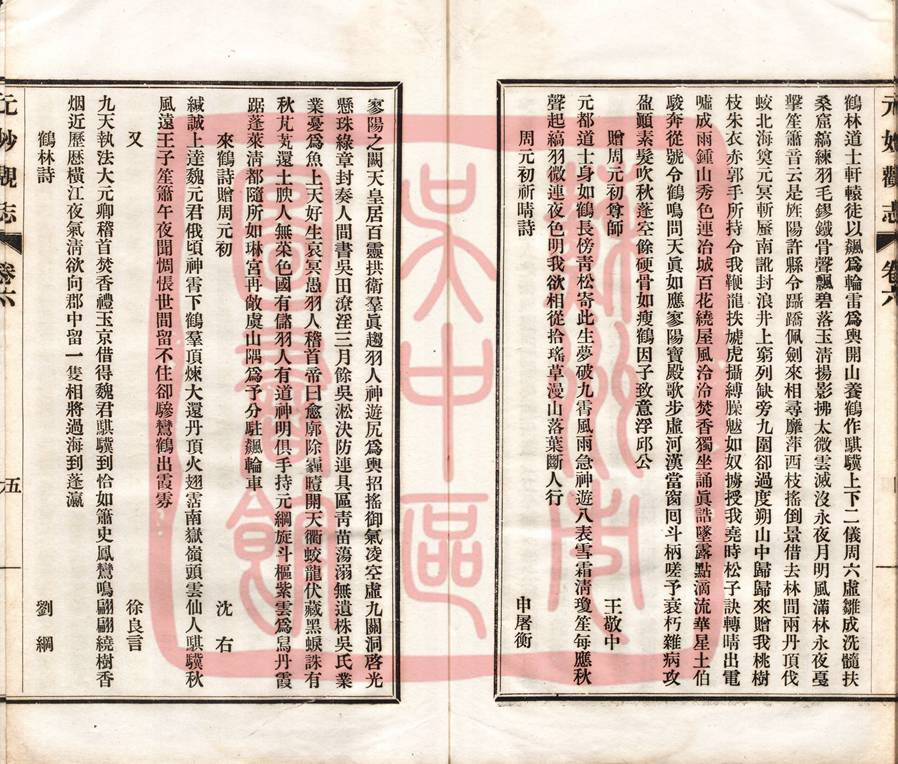 元妙觀志 卷六
鶴林道士軒轅徒以飆爲輪雷爲輿開山養鶴作騏驥上下二儀周六虛雛成洗髓扶
桑窟縞練羽毛鏐鐵骨聲飄碧落玉清揚影拂太微雲滅沒永夜月明風滿林永夜戛
擊笙簫音云是旌陽許縣令躡蹻佩劍來相尋靡萍西枝搖倒景借去林間兩丹頂伐
蛟北海奠元冥斬蜃南訛封浪井上窮列缺旁九圍卻過度朔山中歸歸來贈我桃樹
枝朱衣赤郭手所持令我鞭龍抶虓虎攝縛臊魃如奴擄授我堯時松子訣轉晴出電
噓成雨鍾山秀色連冶城百花繞屋風泠泠焚香獨坐誦眞誥墜露點滴流華星土伯
駿奔從號令鶴鳴問天眞如應寥陽寶殿歌步虛河漢當窗囘斗柄嗟予衰朽雜病攻
盈顚素髮吹秋蓬空餘硬骨如瘦鶴因子致意浮邱公
贈周元初尊師 王敬中
元都道士身如鶴長傍靑松寄此生夢破九霄風雨急神遊八表雪霜淸瓊笙每應秋
聲起縞羽微連夜色明我欲相從拾瑤草漫山落葉斷人行
周元初祈晴詩 申屠衡
寥陽之闕天皇居百靈拱衛羣眞趨羽人神遊尻爲輿招搖御氣凌空虛九關洞啓光
懸珠綠章封奏人間書吳田潦淫三月餘吳淞決防連具區靑苗蕩溺無遺株吳氏業
業憂爲魚上天好生哀冥愚羽人稽首帝曰愈廓除霾曀開天衢蛟龍伏藏黑蜧誅有
秋芃芃還土腴人無菜色國有儲羽人有道神明俱手持元綱旋斗樞紫雲爲舄丹霞
踞蓬萊淸都隨所如琳宮再敞虞山隅爲予分駐飆輪車
來鶴詩贈周元初 沈右
緘誠上達魏元君俄頃神霄下鶴羣頂煉大還丹頂火翅霑南嶽嶺頭雲仙人騏驥秋
風遠王子笙簫午夜聞惆悵世間留不住卻驂鸞鶴出霞雰
又 徐良言
九天執法大元卿稽首焚香禮玉京借得魏君騏驥到恰如簫史鳳鸞鳴翩翩繞樹香
烟近歷歷橫江夜氣淸欲向郡中留一隻相將過海到蓬瀛
鶴林詩 劉綱
元妙觀志 卷六 五
蘇州市
吳中區
圖書館